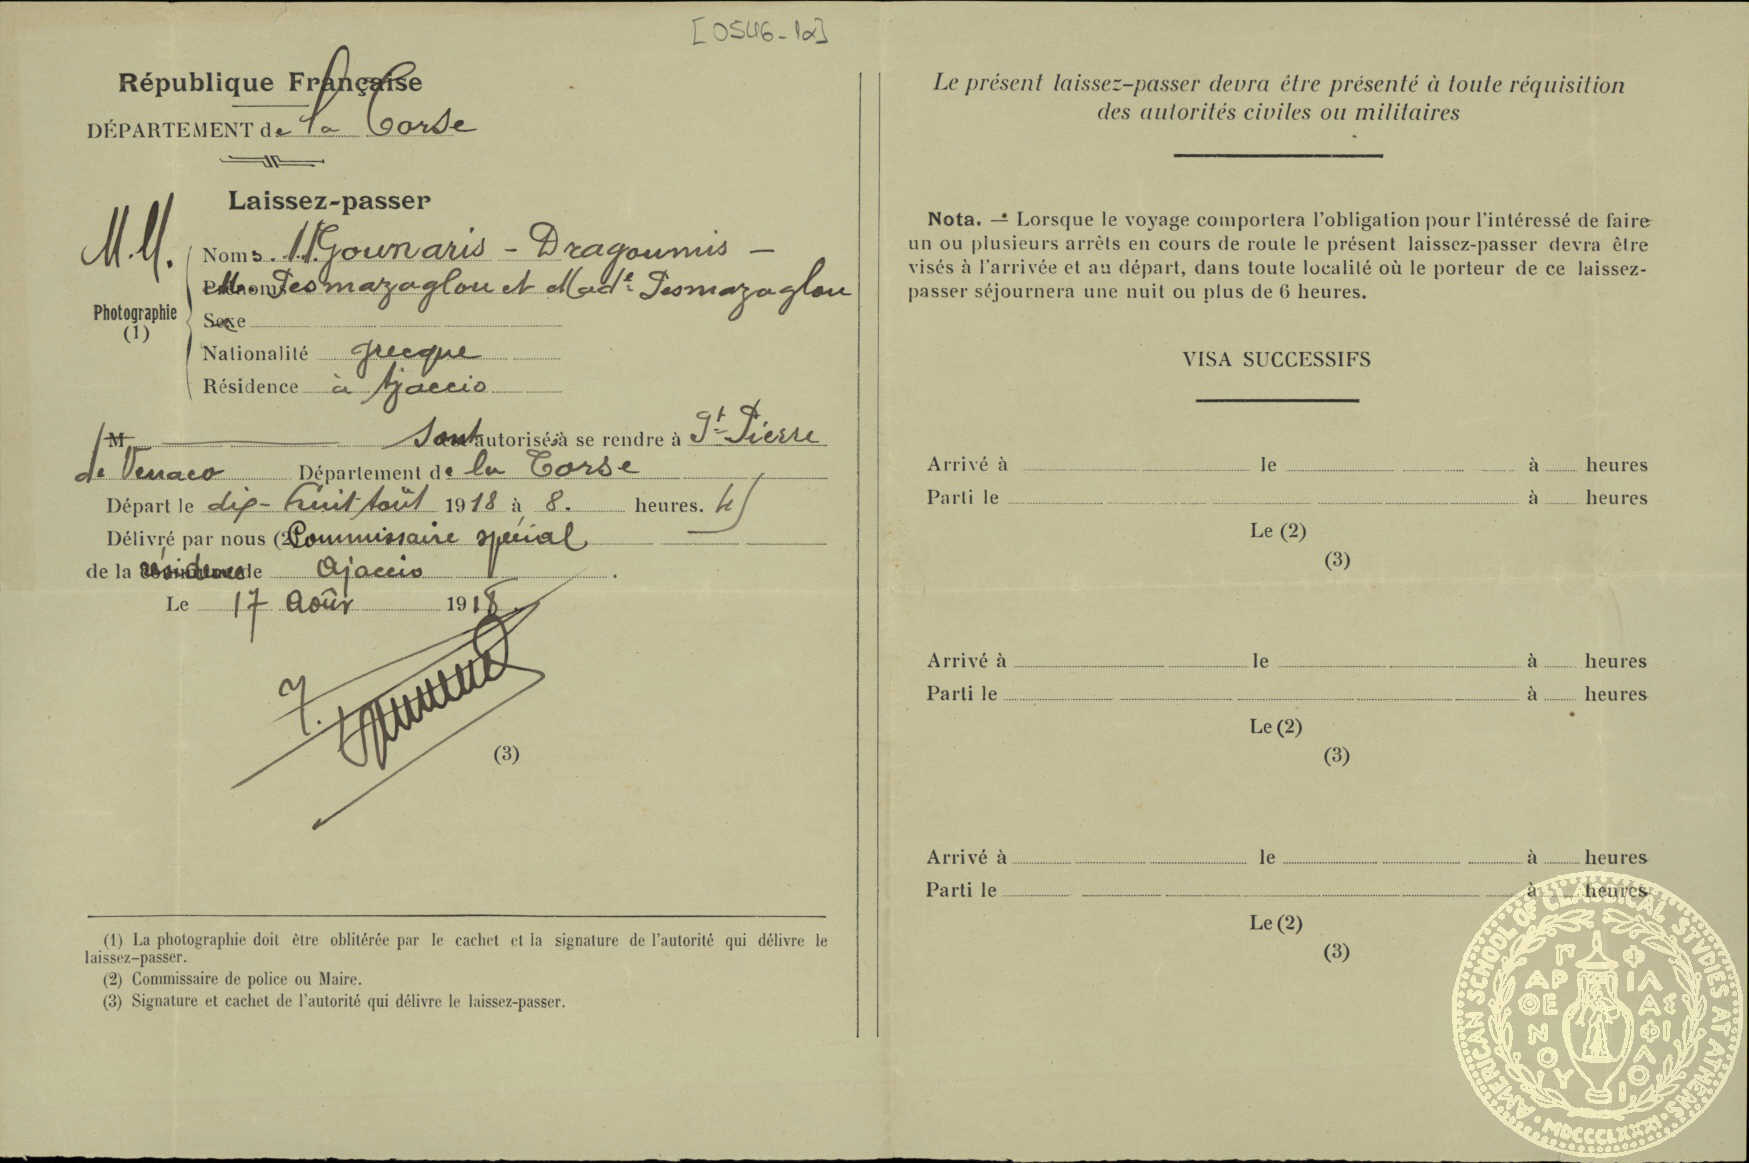 [0546-1α]
République Française
DÉPARTEMENT de la Corse
Laissez-passer
M.M.
Noms. Gounaris - Dragoumis -
Pesmazoglou et Made Pesmazoglou
Photographie
(1)
Sexe
Nationalité grecque
Résidence à Ajaccio
M sont autorisés à se rendre à St Pierre
de Venaco Département de la Corse
Départ le dix-huit Août 1918 à 8. heures.
Délivré par nous (2) Commissaire spécial
de la résidence de Ajaccio.
Le 17 Août 1918.
(3)
(1) La photographie doit être oblitérée par le cachet et la signature de l'autorité qui délivre le
laissez-passer.
(2) Commissaire de police ou Maire.
(3) Signature et cachet de l'autorité qui délivre le laissez-passer.
Le présent laissez-passer devra être présenté à toute réquisition
des autorités civiles ou militaires
Nota. — Lorsque le voyage comportera l'obligation pour l'intéressé de faire
un ou plusieurs arrêts en cours de route le présent laissez-passer devra être
visés à l'arrivée et au départ, dans toute localité où le porteur de ce laissez-
passer séjournera une nuit ou plus de 6 heures.
VISA SUCCESSIFS
Arrivé à le à heures
Parti le à heures
Le (2)
(3)
Arrivé à le à heures
Parti le à heures
Le (2)
(3)
Arrivé à le à heures
Parti le à heures
Le (2)
(3)
AMERICAN SCHOOL OF CLASSICAL STVDIES AT ATHENS
ΠΑΡΘΕΝΟΥ ΦΙΛΑΣ ΦΙΛΟΙ
MDCCCLXXXI